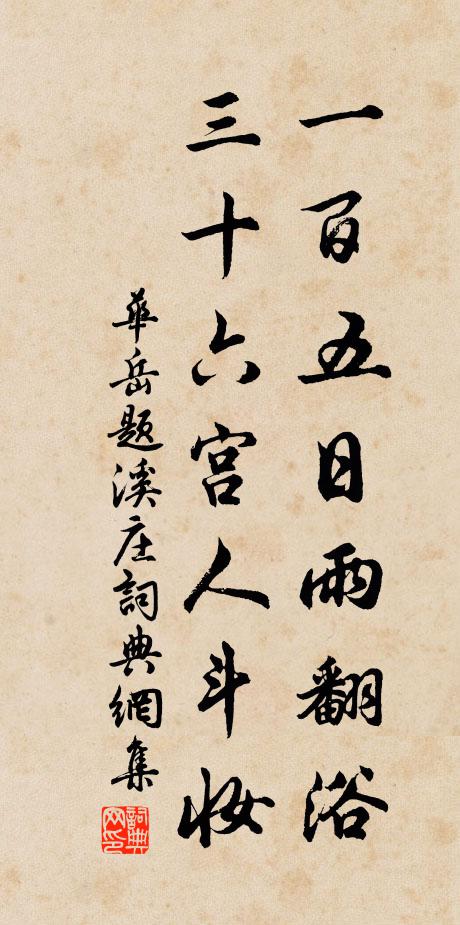 一百五日雨翻浴
三十六宫人斗妆
華岳題溪庄詞典網集
詞典網印